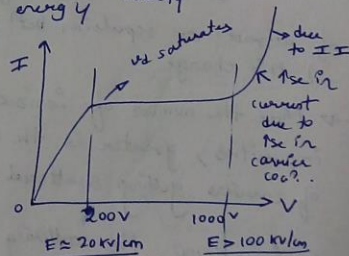 energy
I
vd saturates
→ due
to I I
↑se in
current
due to
↑se in
carrier
conc?..
0
200V
1000V
V
E ≈ 20 kV/cm
E > 100 kV/cm